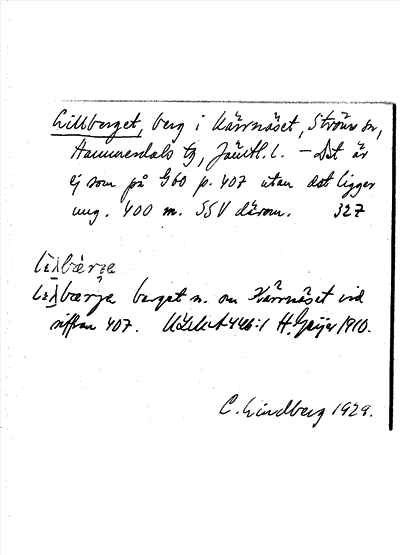 Lillberget, berg i Kärrnäset, Ströms sn,
Hammerdals tg, Jämtl. l. – Det är
ej som på G60 p. 407 utan det ligger
ung. 400 m. SSV därom. 327
lìλbær̀ga
berget n. om Kärrnäset vid
siffran 407. H. Geijer 1910.
C. Lindberg 1929.